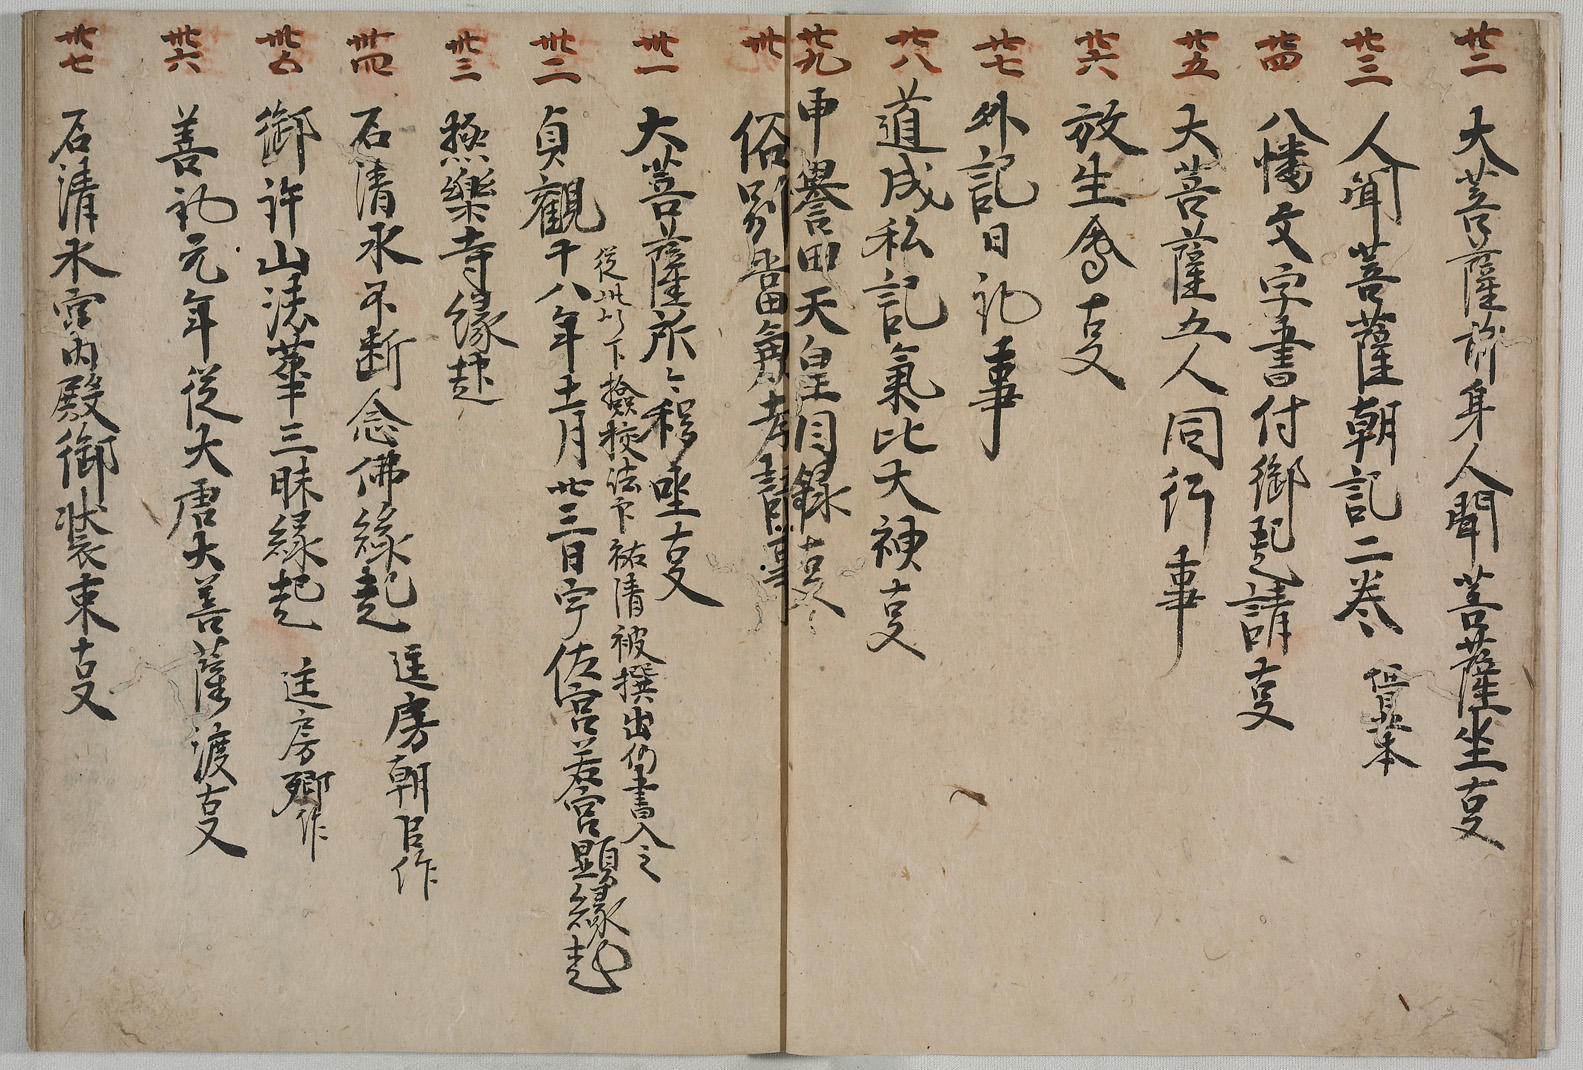 廿二 大菩薩御身人聞菩薩坐事
廿三 人聞菩薩朝記二卷
廿四 八幡文字書付御起請事
廿五 大菩薩五人同行事
廿六 放生會事
廿七 外記日記事
廿八 道成私記氣比大神事
廿九 申譽田天皇目録事
卅 俗別當
卅一 大菩薩所々移坐事
從此以下檢校法印祐清被撰出仍書入之
卅二 貞觀十八年十二月廿三日宇佐宮若宮顯縁起
卅三 極樂寺縁起
卅四 石清水不断念佛縁起 匡房朝臣作
卅五 御許山法華三昧縁起 匡房卿作
卅六 善記元年從大唐大菩薩渡事
卅七 石清水宮内殿御裝束事